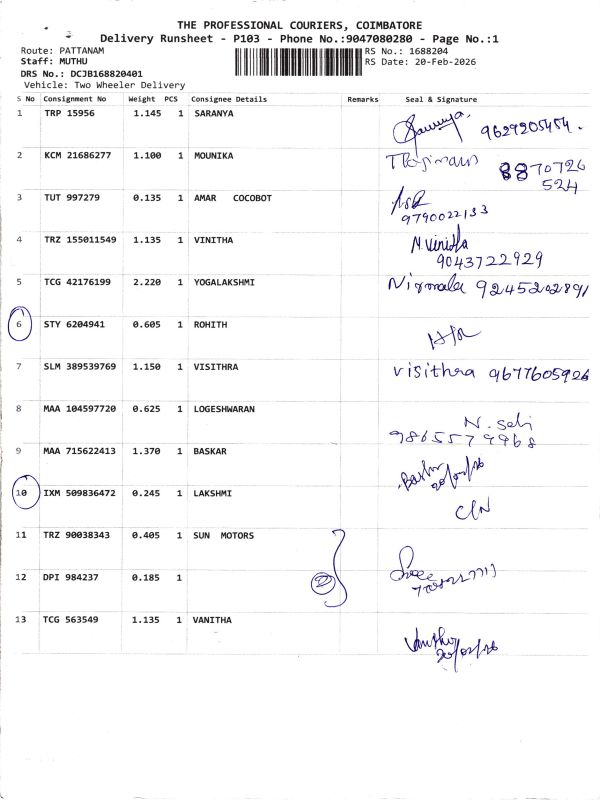 THE PROFESSIONAL COURIERS, COIMBATORE
Delivery Runsheet - P103 - Phone No.:9047080280 - Page No.:1
Route: PATTANAM
RS No.: 1688204
Staff: MUTHU
RS Date: 20-Feb-2026
DRS No.: DCJB168820401
Vehicle: Two Wheeler Delivery
S No Consignment No Weight PCS Consignee Details Remarks Seal & Signature
1 TRP 15956 1.145 1 SARANYA 9629205454.
2 KCM 21686277 1.100 1 MOUNIKA 8870726
524
3 TUT 997279 0.135 1 AMAR COCOBOT
9790022133
4 TRZ 155011549 1.135 1 VINITHA M. Vinitha
9043722929
5 TCG 42176199 2.220 1 YOGALAKSHMI Nirmala 9245202891
6 STY 6204941 0.605 1 ROHITH
7 SLM 389539769 1.150 1 VISITHRA visithra 9677605926
8 MAA 104597720 0.625 1 LOGESHWARAN N. Selvi
9865579968
9 MAA 715622413 1.370 1 BASKAR
20/02/26
10 IXM 509836472 0.245 1 LAKSHMI
11 TRZ 90038343 0.405 1 SUN MOTORS
12 DPI 984237 0.185 1 2
13 TCG 563549 1.135 1 VANITHA
20/02/26